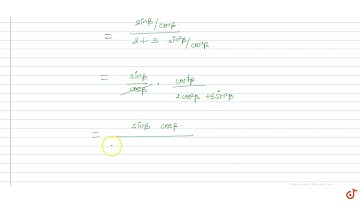 sinβ/cosβ
= 2+3 sin²β/cos²β
= sinβ/cosβ · cos²β/2cos²β+3sin²β
= sinβ cosβ